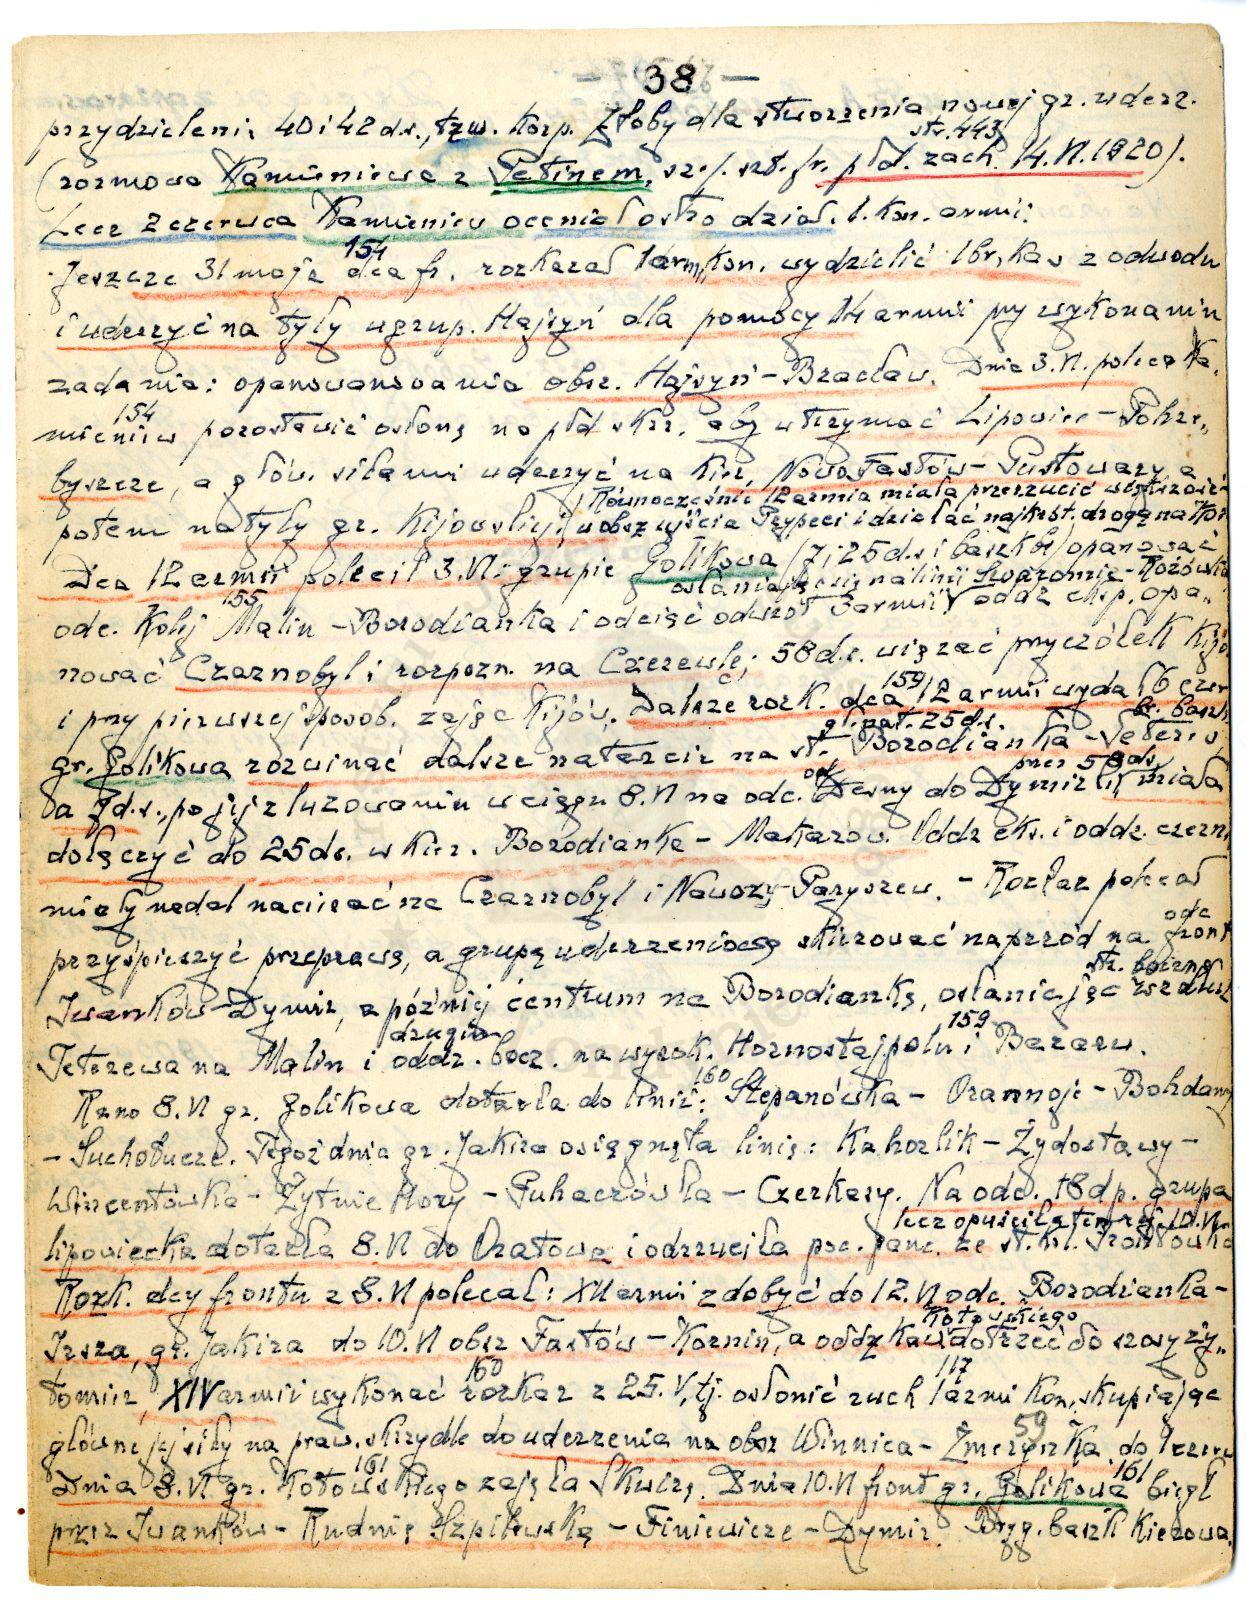 — 38 —
przydzieleni 40 i 42 d.s., tzw. Korp. Żłoby dla stworzenia nowej gr. uderz.
str. 443
(rozmowa Kamieniewa z Petinem, szef. szt. fr. płd. zach. 14.VI.1920).
Lecz z czerwca Kamieniew oceniał ostro dział. 1. Kon. armii:
154
Jeszcze 31 maja dca fr. rozkazał 1 arm. kon. wydzielić 1 br. kaw z odwodu
i uderzyć na tyły ugrup. Hajsyń dla pomocy 14 armii przy wykonaniu
zadania: opanowania obsz. Hajsyń – Bracław. Dnia 3.VI. poleca Ka-
154
mieniew pozostawić osłonę na płd skrz. aby utrzymać Lipowiec – Pohre-
byszcze, a głów. siłami uderzyć na kier. Nowofastów – Pustowary a
Równocześnie 12 armia miała przerzucić
potem na tyły gr. Kijowskiej w obsz ujścia Prypeci i działać najkrót. drogą na Kor
Dca 12 armii polecił 3.VI: grupie Golikowa (7 i 25 d.s. i br baszk) opanować
155
osłaniając się na linii – Rożówka
odc. Kolej Malin – Borodianka i odciąć odwrót 3 armii oddz eksp. opa-
nować Czarnobyl i rozpozn. na Czerewle; 58 d.s. wiązać przyczółek Kijów
159
i przy pierwszej sposob. zająć Kijów. Dalsze rozk. dca 12 armii wydał 6 czerw
gł. nat. 25 d.s. br. baszk
gr. Golikowa rozwinąć dalsze natarcie na st. Borodianka – Teterew
przez 58 ds
a 7 d.s., po jej zluzowaniu w ciągu 8.VI na odc. od Desny do Dymirki miała
dołączyć do 25 ds. w kier. Borodianka – Makarow. Oddz eks. i oddz. czern
miały nadal naciskać na Czarnobyl i Nawozy – Paryszew. – Rozkaz polecał
odc
przyśpieszyć przeprawę, a grupę uderzeniową skierować naprzód na front
str. boczną
Iwanków – Dymir, a później centrum na Borodiankę, osłaniając wzdłuż
drugim 159
Teterewa na Malin i oddz. bocz. na wysok. Hornostajpolu i Bazaru.
160
Rano 8.VI gr. Golikowa dotarła do linii: Stepanówka – Orannoje – Bohdany
– Suchołucze. Tegoż dnia gr. Jakira osiągnęła linię: Kahorlik – Żydostawy –
Wincentówka – Żytnie Hory – Puhaczówka – Czerkasy. Na odc. 18 dp. grupa
lecz opuściła ten rej. 10.VI
lipowiecka dotarła 8.VI do Oratowa i odrzuciła poc. panc. ze st. kol. Frontówka
Rozk. dcy frontu z 8.VI polecał: XII armii zdobyć do 12.VI odc. Borodianka –
Kotowskiego
Irsza, gr. Jakira do 10.VI obsz Fastów – Kornin, a oddz kaw dotrzeć do szosy Ży-
160 117
tomierz, XIV armii wykonać rozkaz z 25.V, tj. osłonić ruch 1 armii Kon., skupiając
59
główne jej siły na praw. skrzydle do uderzenia na obsz Winnica – Żmerynka do
161 161
Dnia 8.VI gr. Kotowskiego zajęła Skwirę. Dnia 10.VI front gr. Golikowa biegł
przez Iwanków – Rudnię Szpilewską – Finiewicze – Dymir. Bryg. baszk kierowa